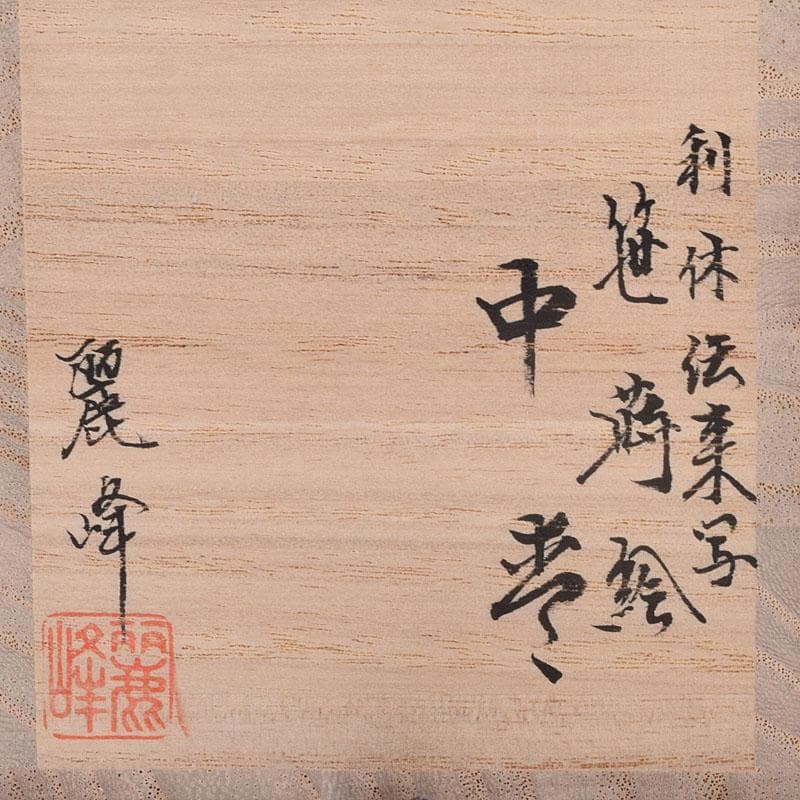 利休伝来写
笹蒔絵
中棗
麗峰
麗峰